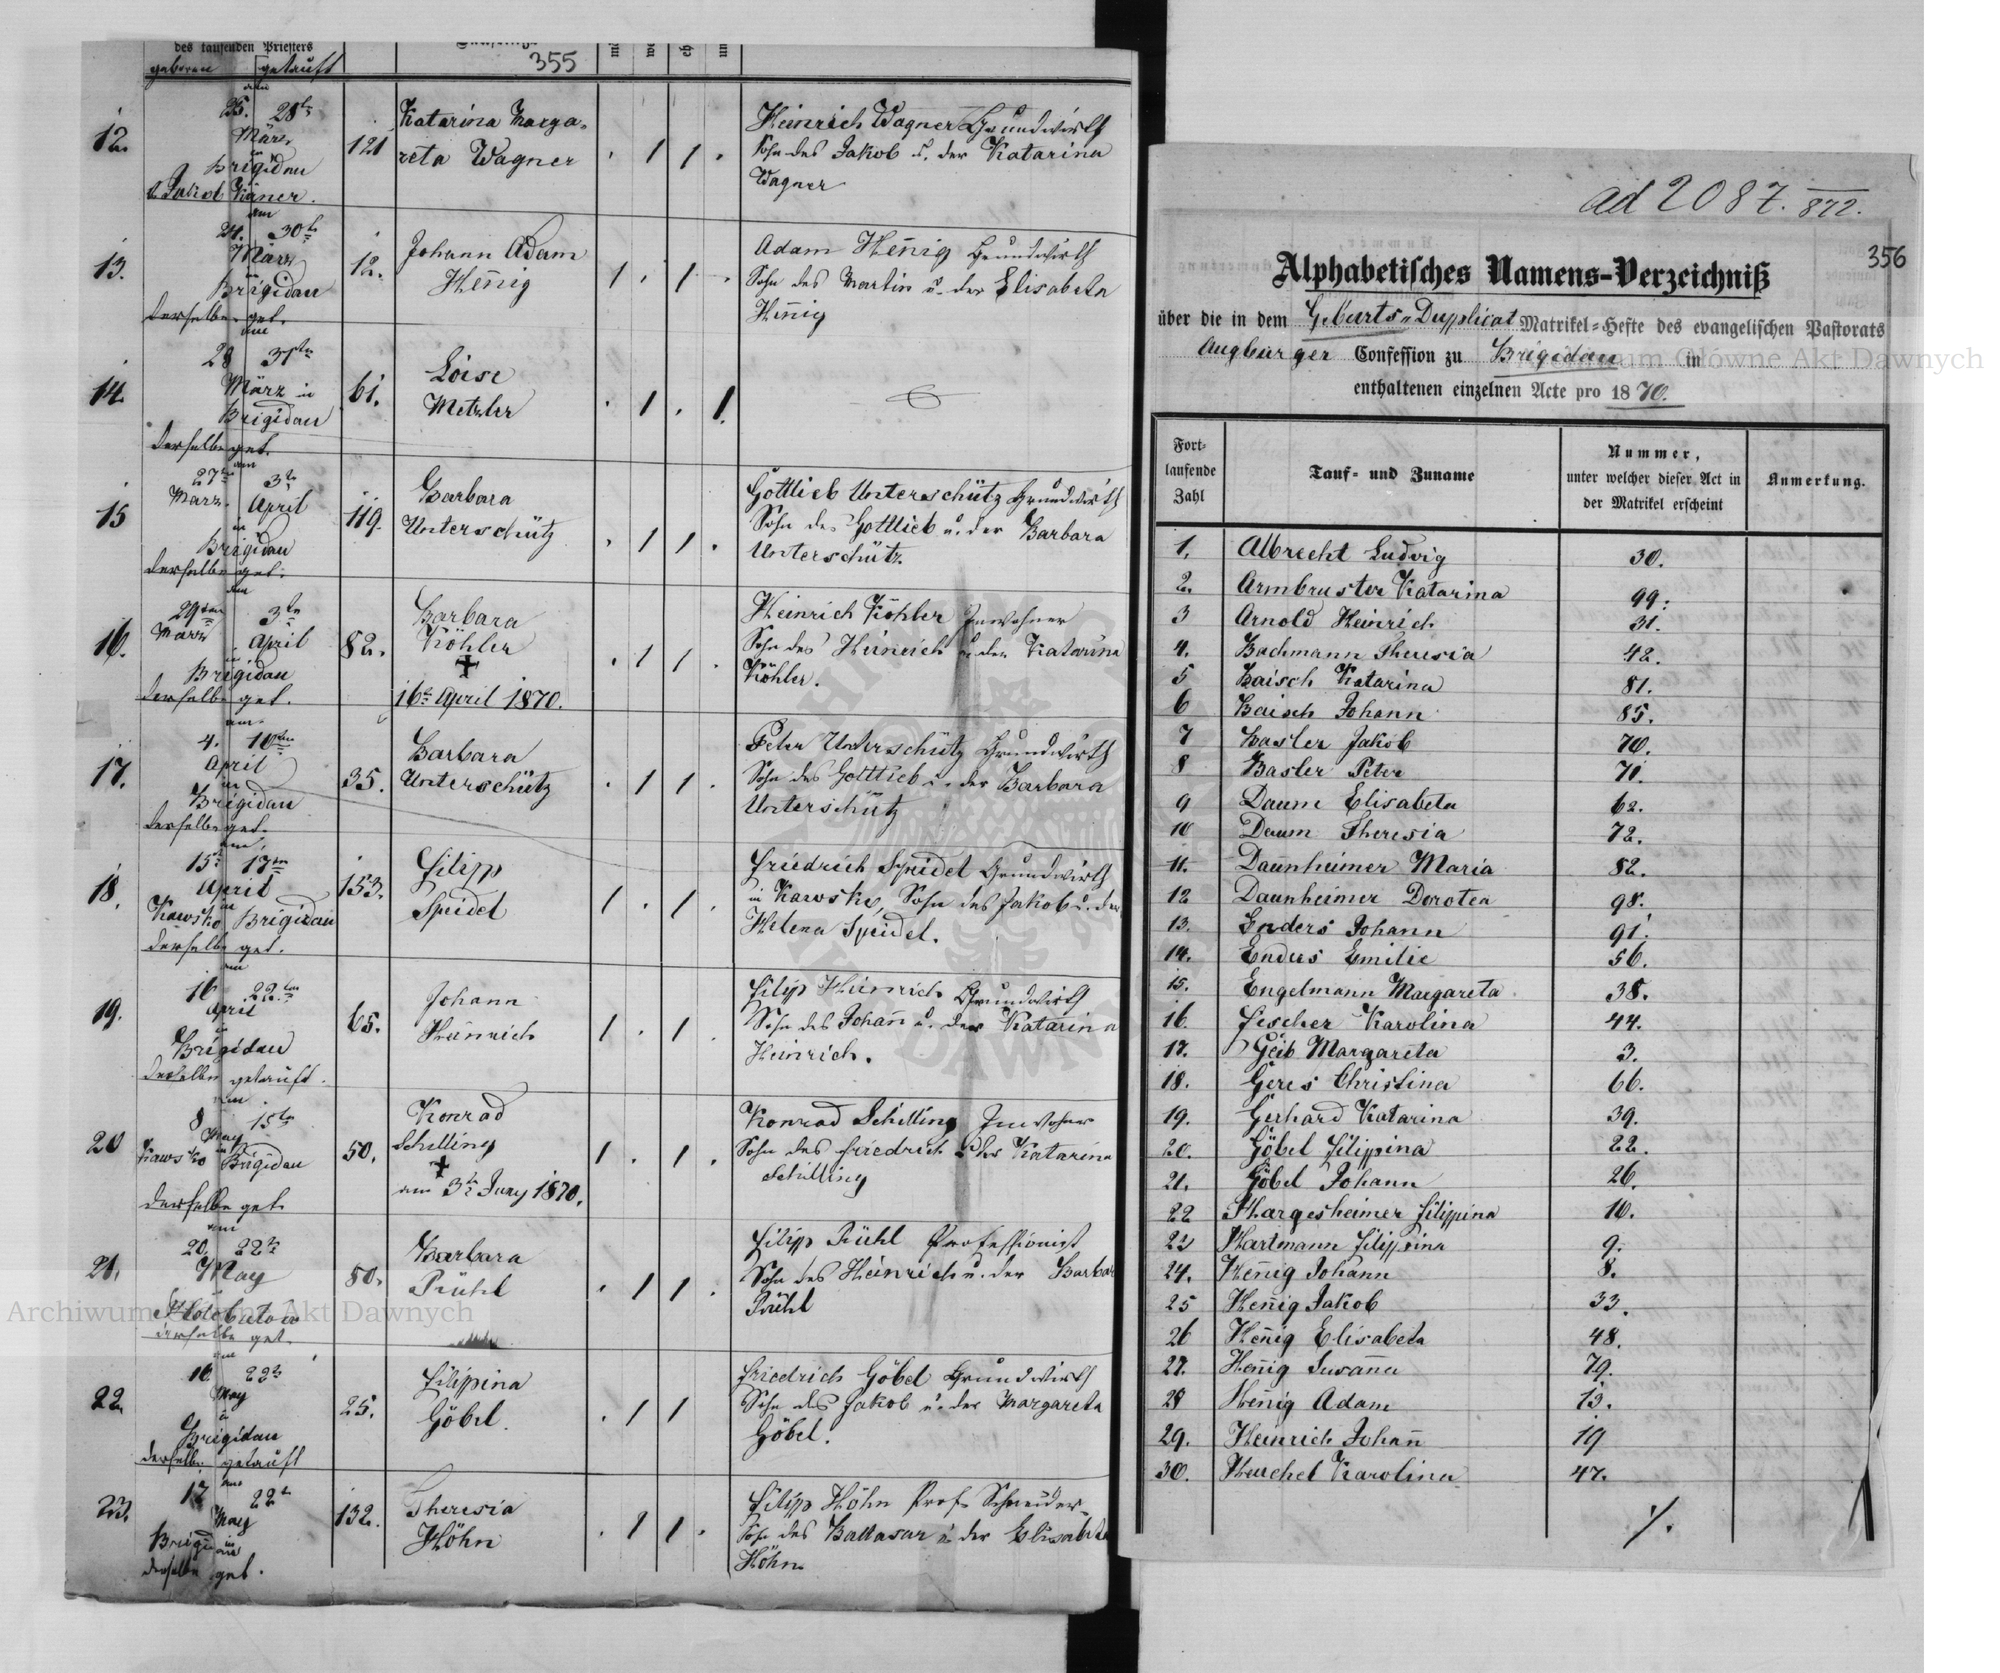 des taufenden Priesters
geboren getauft
355
12.
25. 28t
März
in
Brigidau
121
Katarina Marga-
reta Wagner
Heinrich Wagner Grundwirth
Sohn des Jakob u. der Katarina
Wagner
am
24. 30t
13.
März
in
Brigidau
derselbe get.
12.
Johann Adam
Hennig
Adam Hennig Grundwirth
Sohn des Martin u. der Elisabeta
Hennig
am
28 31ten
14.
März in
Brigidau
derselbe get.
61.
Loise
Metzler
am
27t 3t
März. April
15
in
Brigidau
derselbe get.
119.
Barbara
Unterschütz
Gottlieb Unterschütz Grundwirth
Sohn des Gottlieb u. der Barbara
Unterschütz.
am
29ten 3ten
März April
16.
in
Brigidau
derselbe get.
82.
Barbara
Köhler
16t April 1870.
Heinrich Köhler Inwohner
Sohn des Heinrich u. der Katarina
Köhler.
am
4. 10ten
April
17.
in
Brigidau
derselbe get.
35.
Barbara
Unterschütz
Peter Unterschütz Grundwirth
Sohn des Gottlieb u. der Barbara
Unterschütz
am
15t 17ten
April
18.
in
Kawsko Brigidau
derselbe get.
153.
Filipp
Speidel
Friedrich Speidel Grundwirth
in Kawsko, Sohn des Jakob u. der
Helena Speidel.
am
16 22ten
April
19.
in
Brigidau
derselbe getauft.
65.
Johann
Heinrich
Filip Heinrich Grundwirth
Sohn des Johann u. der Katarina
Heinrich.
am
8 15ten
May
20
in
Kawsko Brigidau
derselbe get.
50.
Konrad
Schilling
am 3t Juny 1870.
Konrad Schilling Inwohner
Sohn des Friedrich u. der Katarina
Schilling
am
20. 22t
21.
May
derselbe get.
80.
Barbara
Rühl
Filipp Rühl Professionist
Sohn des Heinrich u. der Barbar
Rühl
am
16 22t
May
22.
in
Brigidau
derselbe getauft
25.
Filipina
Göbel.
Friedrich Göbel Grundwirth
Sohn des Jakob u. der Margareta
Göbel.
am
12 22t
23.
May
in
derselbe get.
132.
Theresia
Höhn
Filipp Höhn Prof. Schneider
Sohn des Baltasar u. der Elisabeta
Höhn
ad 2087. 872.
356
Alphabetisches Namens-Verzeichniß
über die in dem Geburts-Duplicat Matrikel-Hefte des evangelischen Pastorats
Augburger Confession zu Brigidau in
enthaltenen einzelnen Acte pro 1870.
Fort-
laufende
Zahl
Tauf- und Zuname
Nummer,
unter welcher dieser Act in
der Matrikel erscheint
Anmerkung.
1. Albrecht Ludvig 30.
2. Armbruster Katarina 99.
3 Arnold Heinrich 31.
4. Bachmann Theresia 42.
5 Baisch Katarina 81.
6 Baisch Johann 85.
7 Basler Jakob 70.
8 Basler Peter 71.
9 Daum Elisabeta 62.
10 Daum Theresia 72.
11. Daunheimer Maria 82.
12 Daunheimer Dorotea 98.
13. Enders Johann 91.
14. Enders Emilie 56.
15. Engelmann Margareta 38.
16. Fescher Karolina 44.
17. Geib Margareta 3.
18. Geres Christina 66.
19. Gerhard Katarina 39.
20. Göbel Filippina 22.
21. Göbel Johann 26.
22 Hargesheimer Filippina 10.
23 Hartmann Filippina 9.
24. Hennig Johann 8.
25 Hennig Jakob 33.
26 Hennig Elisabeta 48.
27. Hennig Susanna 79.
28 Hennig Adam 13.
29. Heinrich Johann 19
30. Heuchel Karolina 47.
./.
Archiwum Główne Akt Dawnych
Archiwum Główne Akt Dawnych